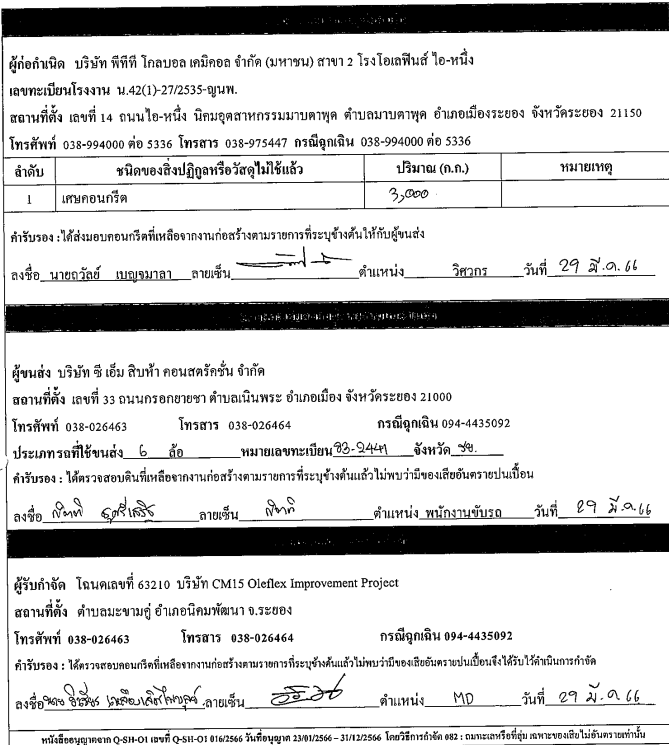 ผู้ก่อกำเนิด บริษัท พีทีที โกลบอล เคมิคอล จำกัด (มหาชน) สาขา 2 โรงโอเลฟินส์ ไอ-หนึ่ง
เลขทะเบียนโรงงาน น.42(1)-27/2535-ญนพ.
สถานที่ตั้ง เลขที่ 14 ถนนไอ-หนึ่ง นิคมอุตสาหกรรมมาบตาพุด ตำบลมาบตาพุด อำเภอเมืองระยอง จังหวัดระยอง 21150
โทรศัพท์ 038-994000 ต่อ 5336 โทรสาร 038-975447 กรณีฉุกเฉิน 038-994000 ต่อ 5336
ลำดับ ชนิดของสิ่งปฏิกูลหรือวัสดุไม่ใช้แล้ว ปริมาณ (ก.ก.) หมายเหตุ
1 เศษคอนกรีต 3,000
คำรับรอง : ได้ส่งมอบคอนกรีตที่เหลือจากงานก่อสร้างตามรายการที่ระบุข้างต้นให้กับผู้ขนส่ง
ลงชื่อ นายถวัลย์ เบญจมาลา ลายเซ็น ตำแหน่ง วิศวกร วันที่ 29 มี.ค. 66
ผู้ขนส่ง บริษัท ซี เอ็ม สิบห้า คอนสตรัคชั่น จำกัด
สถานที่ตั้ง เลขที่ 33 ถนนกรอกยายชา ตำบลเนินพระ อำเภอเมือง จังหวัดระยอง 21000
โทรศัพท์ 038-026463 โทรสาร 038-026464 กรณีฉุกเฉิน 094-4435092
ประเภทรถที่ใช้ขนส่ง 6 ล้อ หมายเลขทะเบียน 83-2441 จังหวัด รย.
คำรับรอง : ได้ตรวจสอบดินที่เหลือจากงานก่อสร้างตามรายการที่ระบุข้างต้นแล้วไม่พบว่ามีของเสียอันตรายปนเปื้อน
ลงชื่อ ลายเซ็น ตำแหน่ง พนักงานขับรถ วันที่ 29 มี.ค. 66
ผู้รับกำจัด โฉนดเลขที่ 63210 บริษัท CM15 Oleflex Improvement Project
สถานที่ตั้ง ตำบลมะขามคู่ อำเภอนิคมพัฒนา จ.ระยอง
โทรศัพท์ 038-026463 โทรสาร 038-026464 กรณีฉุกเฉิน 094-4435092
คำรับรอง : ได้ตรวจสอบคอนกรีตที่เหลือจากงานก่อสร้างตามรายการที่ระบุข้างต้นแล้วไม่พบว่ามีของเสียอันตรายปนเปื้อนจึงได้รับไว้ดำเนินการกำจัด
ลงชื่อ ลายเซ็น ตำแหน่ง MD วันที่ 29 มี.ค. 66
หนังสืออนุญาตจาก Q-SH-O1 เลขที่ Q-SH-O1 016/2566 วันที่อนุญาต 23/01/2566 – 31/12/2566 โดยวิธีการกำจัด 082 : ถมทะเลหรือที่ลุ่ม เฉพาะของเสียไม่อันตรายเท่านั้น